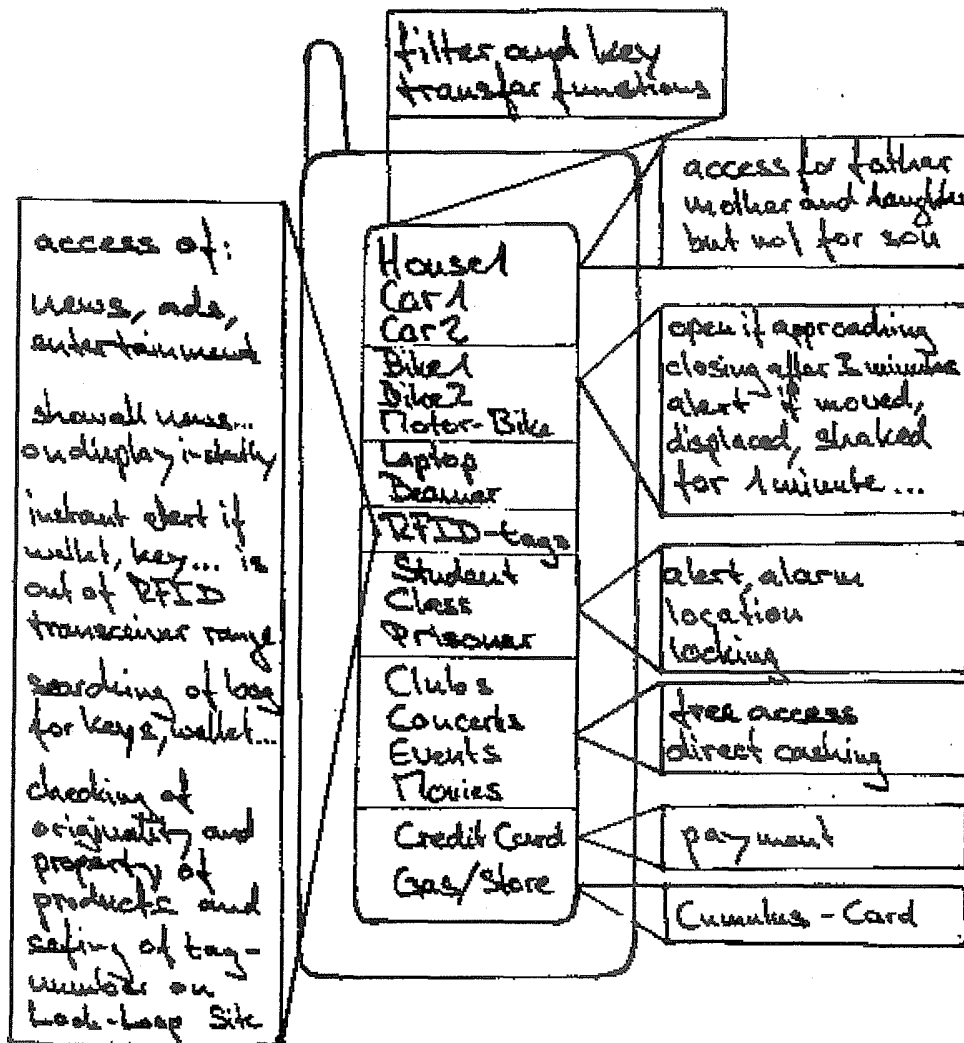 filter and key
transfar functions
access for father
mother and daughter
but not for son
access of:
news, ads,
entertainment
show all news...
on display instantly
instant alert if
wallet, key... is
out of RFID
transceiver range
searching of bag
for keys, wallet...
checking of
originality and
property of
products and
safing of tag-
number on
Lock-Loop Site
House1
Car1
Car2
Bike1
Bike2
Motor-Bike
Laptop
Beamer
RFID-tags
Student
Class
Prisoner
Clubs
Concerts
Events
Movies
Credit Card
Gas/Store
open if approaching
closing after minutes
alert if moved,
displaced, shaked
for 1 minute...
alert, alarm
location
locking
free access
direct cashing
payment
Cumulus-Card